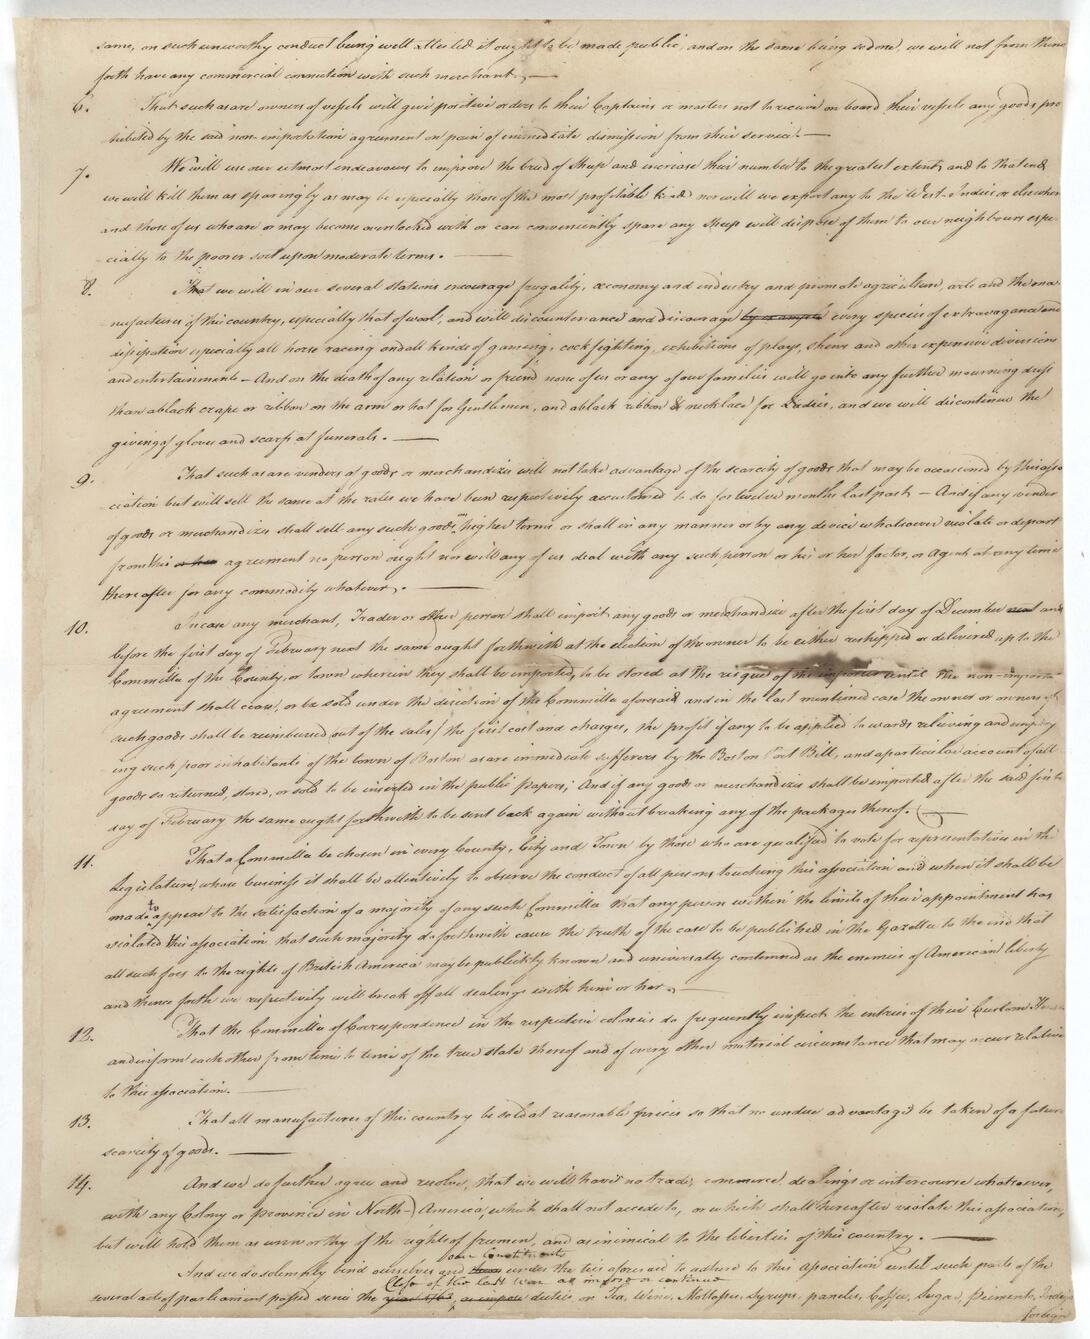 same, on such unworthy conduct being well attested it ought to be made public, and on the same being so done, we will not from thence
forth have any commercial connection with such merchant. —
6. That such as are owners of vessels will give positive orders to their Captains or masters not to receive on board their vessels any goods pro
hibited by the said non-importation agreement on pain of immediate dismission from their service. —
7. We will use our utmost endeavours to improve the breed of Sheep and increase their number to the greatest extent, and to that end
we will kill them as sparingly as may be especially those of the most profitable kind nor will we export any to the West-Indies or elsewhere
and those of us who are or may become overstocked with or can conveniently spare any Sheep will dispose of them to our neighbours espe-
cially to the poorer sort upon moderate terms. —
8. That we will in our several stations encourage frugality, œconomy and industry and promote agriculture, arts and the ma-
nufactures of this country, especially that of wool; and will discountenance and discourage by example every species of extravagance and
dissipation especially all horse racing and all kinds of gaming, cock fighting, exhibitions of plays, shews and other expensive diversions
and entertainments — And on the death of any relation or friend none of us or any of our families will go into any further mourning dress
than a black crape or ribbon on the arm or hat for Gentlemen, and a black ribbon & necklace for Ladies, and we will discontinue the
giving of gloves and scarfs at funerals. —
9. That such as are venders of goods or merchandizes will not take advantage of the scarcity of goods that may be occasioned by this asso
ciation but will sell the same at the rates we have been respectively accustomed to do for twelve months last past — And if any vender
of goods or merchandizes shall sell any such goods on higher terms or shall in any manner or by any device whatsoever violate or depart
from this agreement no person ought nor will any of us deal with any such person or his or her factor, or Agent at any time
thereafter for any commodity whatever. —
10. In case any merchant, Trader or other person shall import any goods or merchandize after the first day of December next and
before the first day of February next the same ought forthwith at the election of the owner to be either reshipped or delivered up to the
Committee of the County, or town wherein they shall be imported, to be stored at the risque of the importer until the non-importa
agreement shall cease, or be sold under the direction of the Committee aforesaid and in the last mentioned case the owner or owners of
such goods shall be reimbursed out of the sales, the first cost and charges, the profit if any to be applied towards relieving and employ
ing such poor inhabitants of the town of Boston as are immediate sufferers by the Boston Port Bill, and a particular account of all
goods so returned, stored, or sold to be inserted in the public papers; And if any goods or merchandizes shall be imported after the said first
day of February the same ought forthwith to be sent back again without breaking any of the packages thereof. —
11. That a Committee be chosen in every County, City and Town by those who are qualified to vote for representatives in the
legislature, whose business it shall be attentively to observe the conduct of all persons touching this association and when it shall be
made to appear to the satisfaction of a majority of any such Committee that any person within the limits of their appointment has
violated this association that such majority do forthwith cause the truth of the case to be published in the Gazette to the end that
all such foes to the rights of British America may be publickly known and universally contemned as the enemies of American liberty
and thence forth we respectively will break off all dealings with him or her. —
12. That the Committee of Correspondence in the respective colonies do frequently inspect the entries of their Custom House
and inform each other from time to time of the true state thereof and of every other material circumstance that may occur relative
to this association. —
13. That all manufactures of this country be sold at reasonable prices so that no undue advantage be taken of a future
scarcity of goods. —
14. And we do further agree and resolve, that we will have no trade, commerce, dealings or intercourse whatsoever,
with any Colony or province in North America, which shall not accede to, or which shall hereafter violate this association,
but will hold them as unworthy of the rights of freemen, and as inimical to the liberties of this country. —
our Constituents
And we do solemnly bind ourselves and under the ties aforesaid to adhere to this association until such parts of the
Close of the last War as impose or continue
several acts of parliament passed since the year 1763, as impose duties on Tea, Wine, Molasses, Syrups, paneles, Coffee, Sugar, Piemento, Indigo
foreign